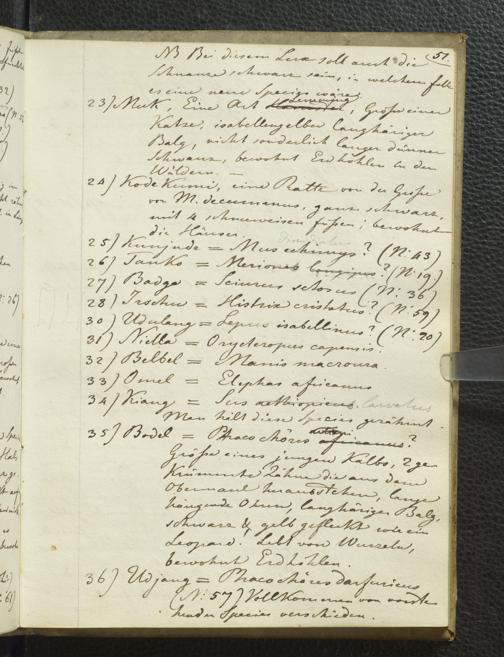 51.
NB Bei diesem Luxe soll auch die
Schnauze schwarz sein, in welchem falle
es eine neue Species wäre.
23) Muk, Eine Art Hamster, Größe einer
Katze, isabellengelber langhäriger
Balg, nicht sonderlich langer dünner
Schwanz, bewohnt Erdhöhlen in den
Wäldern. —
24) Kodekumi, eine Ratte von der Größe
von M. decumanus, ganz schwarz,
mit 4 schneeweisen füßen; bewohnt
die Häuser.
25) Kunjude = Mus echimys? (N: 43)
26) Tanko = Meriones ? (N: 19)
27) Badga = Sciurus setosus (N: 36)
28) = Histrix cristatus? (N: 59)
30) Udulang = Lepus isabellinus? (N: 20)
31) Niella = Orycteropus capensis.
32) Belbel = Manis macroura
33) Omel = Elephas africanus
34) Kiang = Sus aethiopicus larvatus
Man hält diese Species gezähmt.
35) Bodel = Phacochöres africanus?
Größe eines jungen Kalbs, 2 ge-
krümmte Zähne die aus dem
Obermaul herausstehen, lange
hängende Ohren, langhäriger Balg,
schwarz & gelb gefleckt wie ein
Leopard! Lebt von Wurzeln,
bewohnt Erdhöhlen.
36) Udjang = Phacochöres darfuricus
(N: 57) Vollkommen von vorste-
hender Species verschieden.